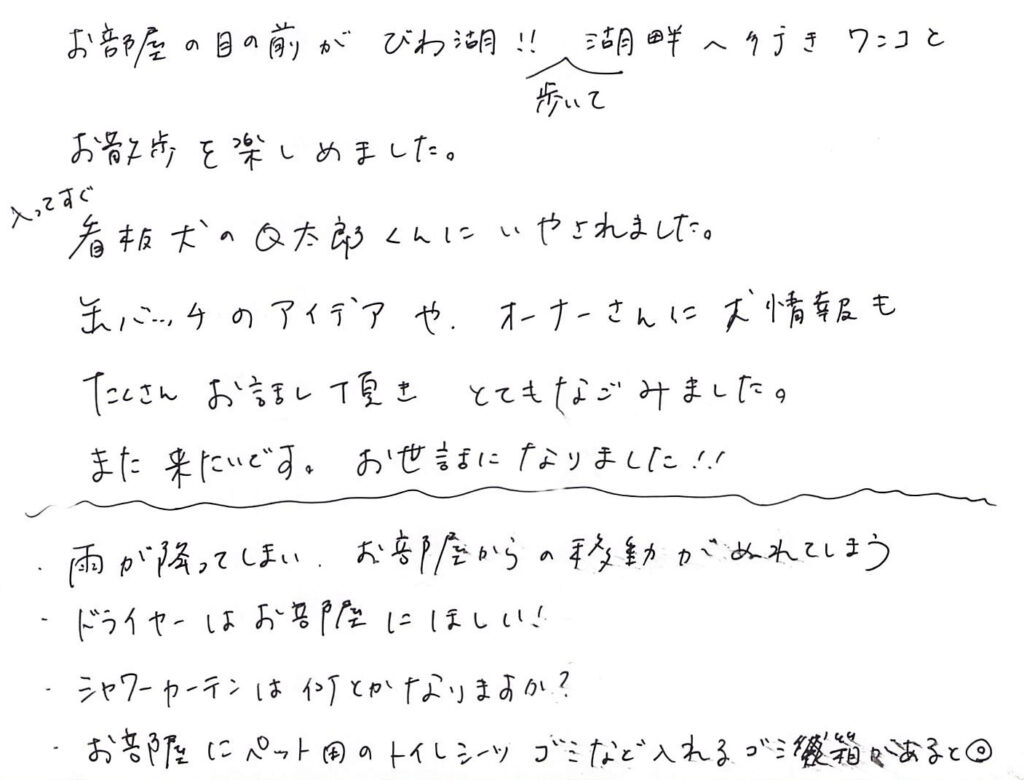 お部屋の目の前が びわ湖!! 湖畔へ行き ワンコと
歩いて
お散歩を楽しめました。
入ってすぐ
看板犬のQ太郎くんにいやされました。
缶バッチのアイデアや、オーナーさんに犬情報も
たくさん お話して頂き とてもなごみました。
また来たいです。 お世話になりました!!
・雨が降ってしまい、お部屋からの移動がぬれてしまう
・ドライヤーはお部屋にほしい!
・シャワーカーテンは何とかなりますか?
・お部屋にペット用のトイレシーツ ゴミなど入れるゴミ箱があると◎